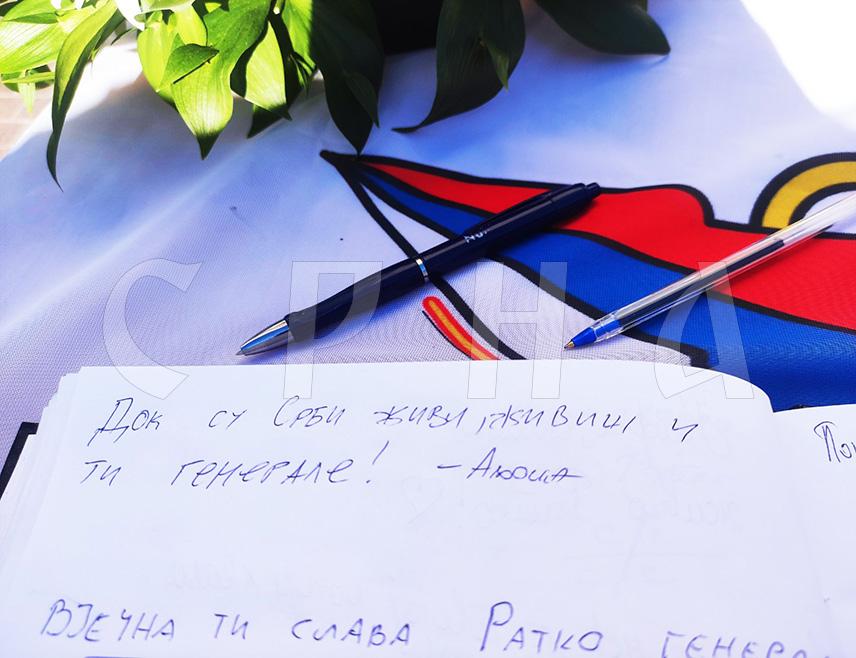 СРНА
Док су Срби живи, живиш и
ти генерале! - Аљоша
По
Вјечна ти слава Ратко генера